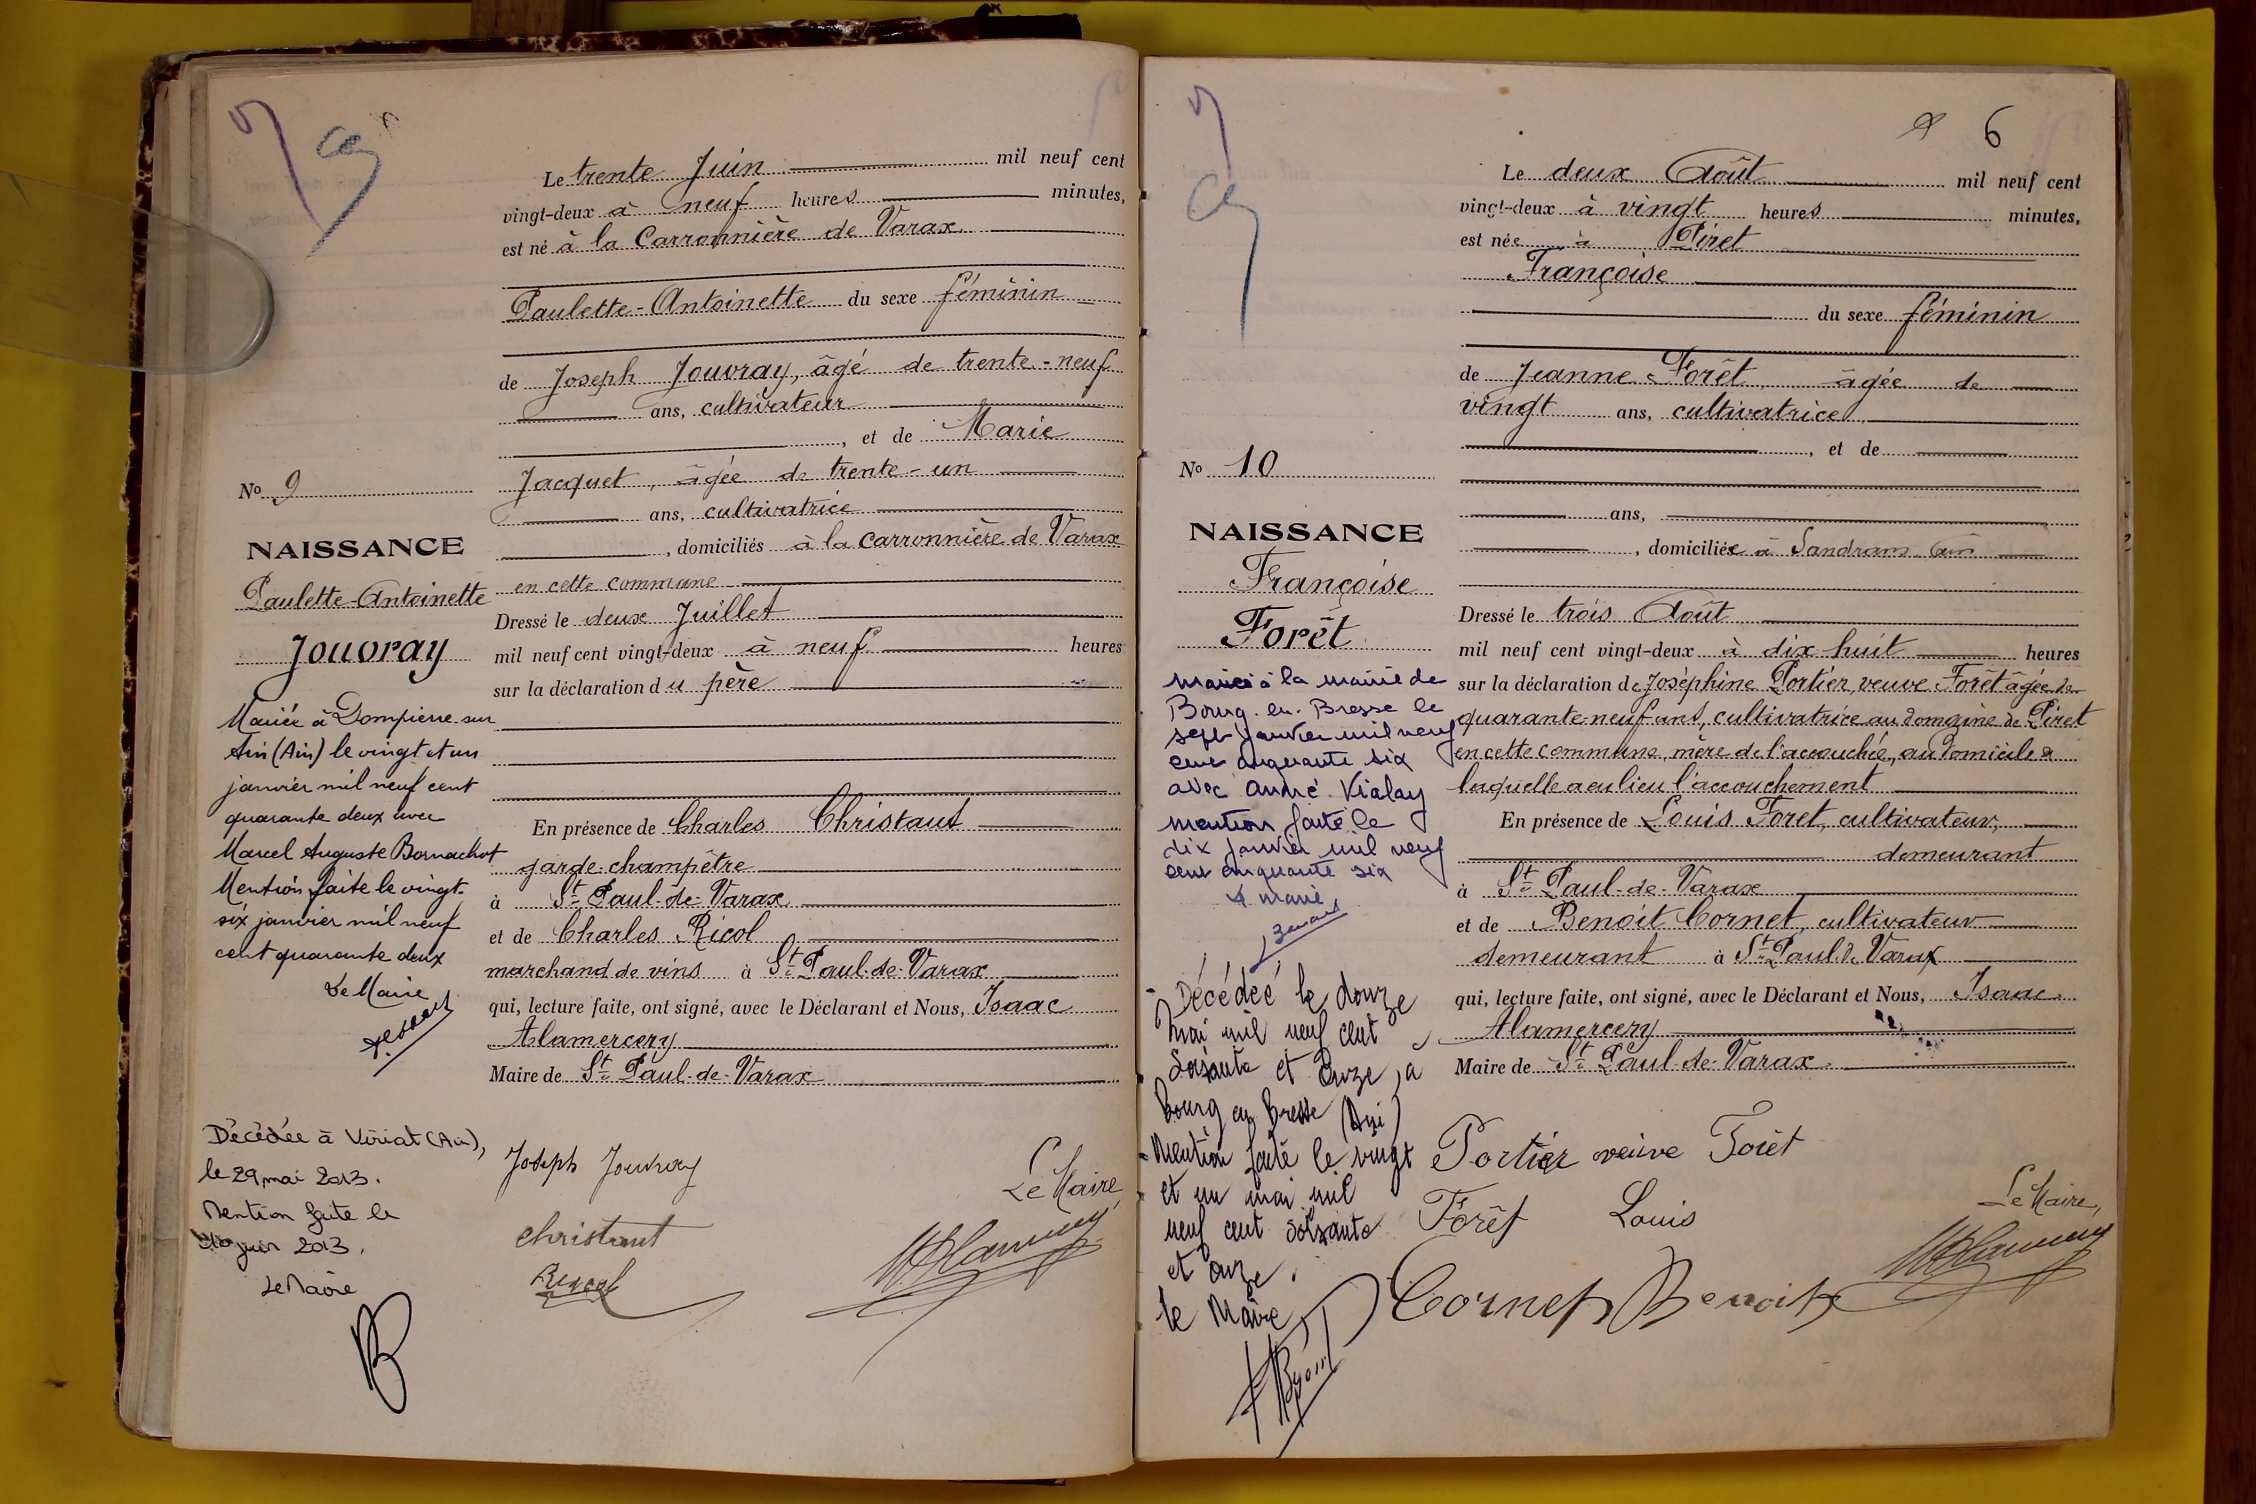 Le trente Juin mil neuf cent
vingt-deux à neuf heures minutes,
est né à la Carronnière de Varax
Paulette-Antoinette du sexe féminin
de Joseph Jouvray, âgé de trente-neuf
ans, cultivateur
, et de Marie
Jacquet, âgée de trente-un
ans, cultivatrice
, domiciliés à la Carronnière de Varax
en cette commune
Dressé le deux Juillet
mil neuf cent vingt-deux à neuf heures
sur la déclaration du père
En présence de Charles Christaut
garde-champêtre
à St Paul-de-Varax
et de Charles Ricol
marchand de vins à St Paul-de-Varax
qui, lecture faite, ont signé, avec le Déclarant et Nous, Isaac
Alamercery
Maire de St Paul-de-Varax
Joseph Jouvray
Le Maire,
Christaut
No 9
NAISSANCE
Paulette-Antoinette
Jouvray
Mariée à Dompierre sur
Ain (Ain) le vingt et un
janvier mil neuf cent
quarante deux avec
Marcel Auguste Bornachot
Mention faite le vingt-
six janvier mil neuf
cent quarante deux
Le Maire
Décédée à Viriat (Ain),
le 29 mai 2013.
Mention faite le
juin 2013.
Le Maire
6
Le deux Août mil neuf cent
vingt-deux à vingt heures minutes,
est née à Piret
Françoise
du sexe féminin
de Jeanne Forêt âgée de
vingt ans, cultivatrice
, et de
ans,
, domiciliée à Sandrans Ain
Dressé le trois Août
mil neuf cent vingt-deux à dix huit heures
sur la déclaration de Joséphine Portier, veuve Forêt âgée de
quarante-neuf ans, cultivatrice au domaine de Piret
en cette commune, mère de l'accouchée, au domicile de
laquelle a eu lieu l'accouchement
En présence de Louis Foret, cultivateur,
demeurant
à St Paul-de-Varax
et de Benoit Cornet, cultivateur
demeurant à St Paul de Varax
qui, lecture faite, ont signé, avec le Déclarant et Nous, Isaac
Alamercery
Maire de St Paul-de-Varax
Portier veuve Forêt
Forêt Louis
Le Maire,
Cornet Benoit
No 10
NAISSANCE
Françoise
Forêt
Mariée à la mairie de
Bourg-en-Bresse le
sept janvier mil neuf
cent cinquante six
avec André Vialay
mention faite le
dix janvier mil neuf
cent cinquante six
Le maire
Décédée le douze
mai mil neuf cent
soixante et onze, à
Bourg en Bresse (Ain)
Mention faite le vingt
et un mai mil
neuf cent soixante
et onze.
Le Maire